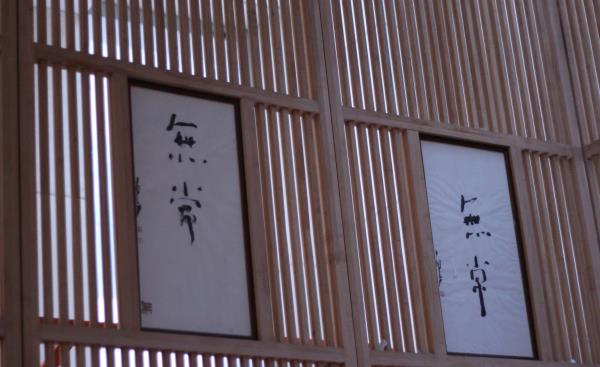 無常
無常